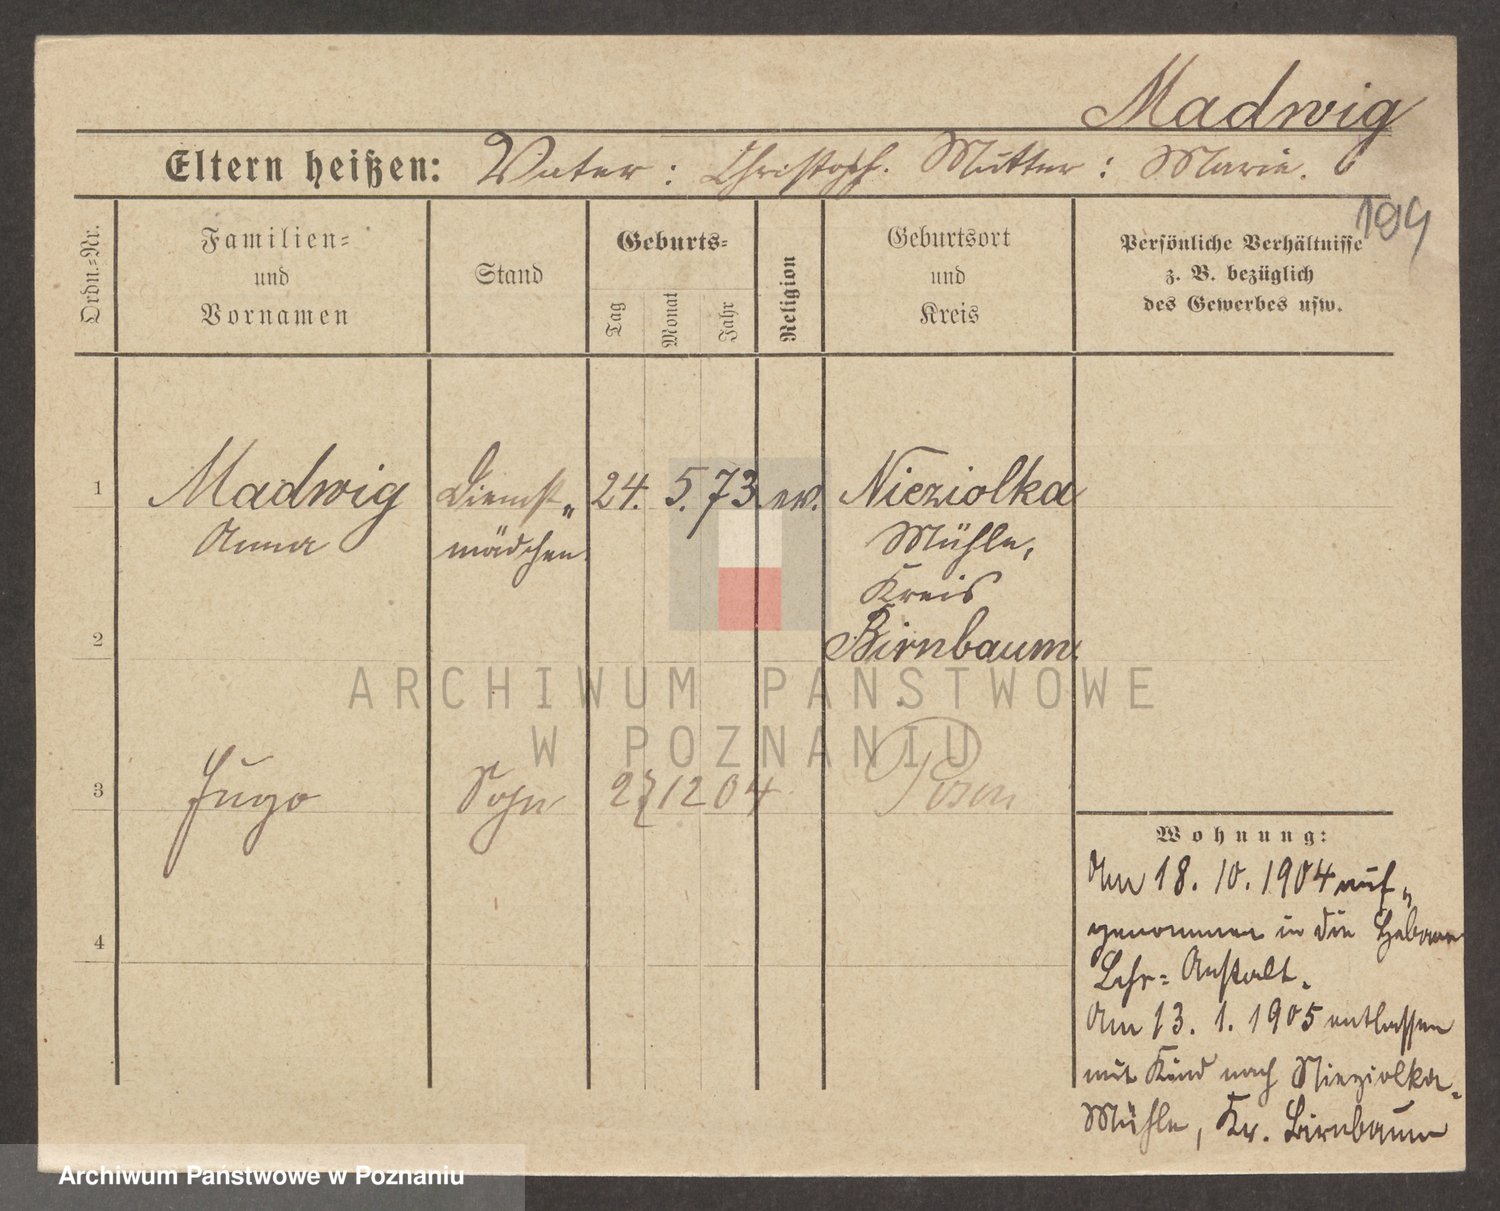 Madwig
Eltern heißen: Vater: Christoph. Mutter: Marie.
194
Ordn.-Nr.
Familien-
und
Vornamen
Stand
Geburts-
Tag
Monat
Jahr
Religion
Geburtsort
und
Kreis
Persönliche Verhältnisse
z. B. bezüglich
des Gewerbes usw.
1 Madwig Dienst- 24. 5. 73 ev. Nieziolka
Anna mädchen. Mühle,
Kreis
2 Birnbaum.
ARCHIWUM PAŃSTWOWE
W POZNANIU
3 Hugo Sohn 27 12 04 Posen
Wohnung:
Am 18. 10. 1904 auf-
genommen in die Hebamm
4
Lehr- Anstalt.
Am 13. 1. 1905 entlassen
mit Kind nach Nieziolka-
Mühle, Kr. Birnbaum
Archiwum Państwowe w Poznaniu